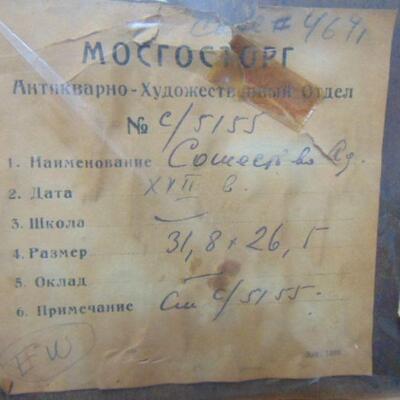 Case # 4691
МОСГОСТОРГ
Антикварно-Художественный Отдел
№ с/5155
1. Наименование Сошеств. во Ад.
2. Дата XVII в.
3. Школа —
4. Размер 31,8 х 26,5
5. Оклад —
6. Примечание См с/5155.
EW